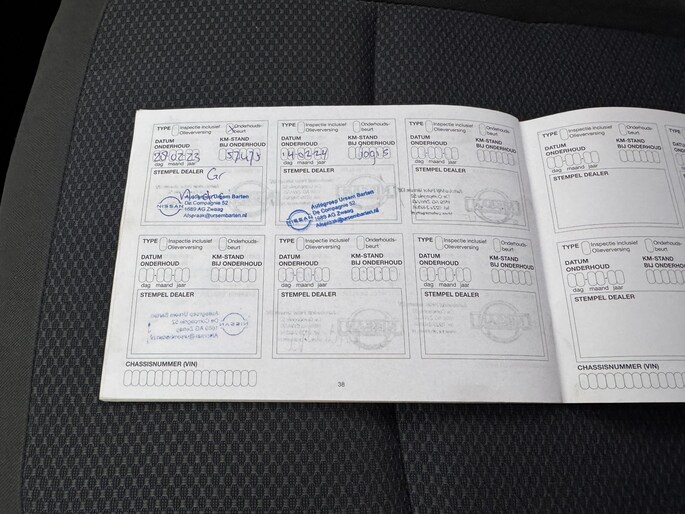 TYPE Inspectie inclusief Olieverversing Onderhouds-beurt
DATUM ONDERHOUD KM-STAND BIJ ONDERHOUD
28 02 23 57473
dag maand jaar
STEMPEL DEALER
Gr
Autogroep Ursem Barten
De Compagnie 52
1689 AG Zwaag
NISSAN
TYPE Inspectie inclusief Olieverversing Onderhouds-beurt
DATUM ONDERHOUD KM-STAND BIJ ONDERHOUD
14 02 24
dag maand jaar
STEMPEL DEALER
Autogroep Ursem Barten
De Compagnie 52
1689 AG Zwaag
NISSAN
TYPE Inspectie inclusief Olieverversing Onderhouds-beurt
DATUM ONDERHOUD KM-STAND BIJ ONDERHOUD
dag maand jaar
STEMPEL DEALER
TYPE Inspectie inclusief Olieverversing Onderhouds-beurt
DATUM ONDERHOUD KM-STAND BIJ ONDERHOUD
dag maand jaar
STEMPEL DEALER
TYPE Inspectie inclusief Olieverversing Onderhouds-beurt
DATUM ONDERHOUD KM-STAND BIJ ONDERHOUD
dag maand jaar
STEMPEL DEALER
TYPE Inspectie inclusief Olieverversing Onderhouds-beurt
DATUM ONDERHOUD KM-STAND BIJ ONDERHOUD
dag maand jaar
STEMPEL DEALER
CHASSISNUMMER (VIN)
38
TYPE Inspectie inclusief Olieverversing Onderhouds-beurt
DATUM ONDERHOUD KM-STAND BIJ ONDERHOUD
dag maand jaar
STEMPEL DEALER
TYPE Inspectie inclusief Olieverversing Onderhouds-beurt
DATUM ONDERHOUD KM-STAND BIJ ONDERHOUD
dag maand jaar
STEMPEL DEALER
CHASSISNUMMER (VIN)